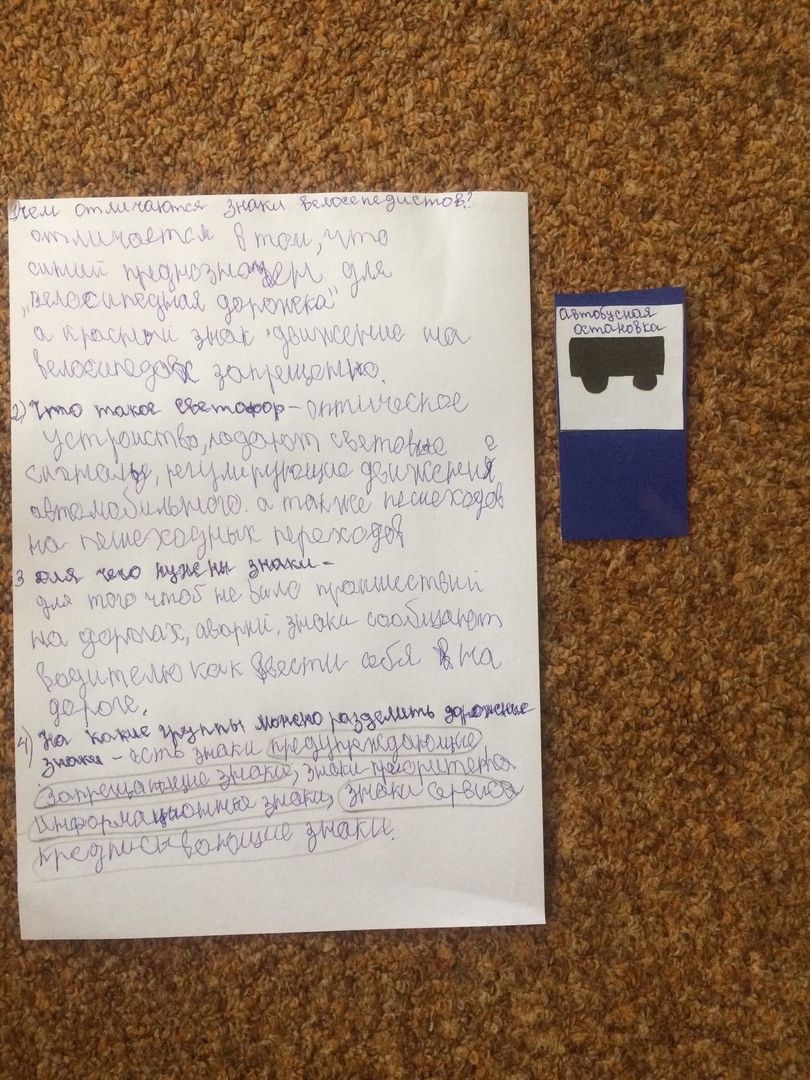 1 чем отличаются знаки велосепедистов?
отличается в том, что
синий
для
„велосипедная дорожка"
а красный знак "движение на
велосипедах запрещенно.
2) Что такое светофор - оптическое
устроиство, подают световые
сигналы, регулирующие движения
автомобильного. а также пешеходов
на пешеходных переходов
3 для чего нужены знаки -
для того чтоб не было
на дорогах, аварий. знаки сообщают
водителю как вести себя на
дороге.
4) на какие группы можно разделить дорожные
знаки - есть знаки предупреждающие
запрещающие знаки, знаки приоритета
информационные знаки, знаки сервиса
предписывающие знаки.
Автобусная
остановка